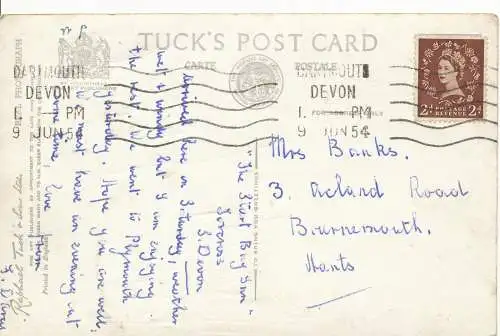 TUCK'S POST CARD
CARTE POSTALE
DARTMOUTH
DEVON
1. PM
9 JUN 54
DARTMOUTH
DEVON
1. PM
9 JUN 54
2d POSTAGE REVENUE 2d
"The Start Bay Inn"
Torcross
S. Devon
Arrived here on Saturday, weather
wet & windy but I am enjoying
the rest. We went to Plymouth
yesterday. Hope you are well,
must have an evening out
some time, love from
Mrs Banks.
3. Acland Road
Bournemouth.
Hants.
REAL PHOTOGRAPH
Raphael Tuck & Sons Ltd.
Printed in England